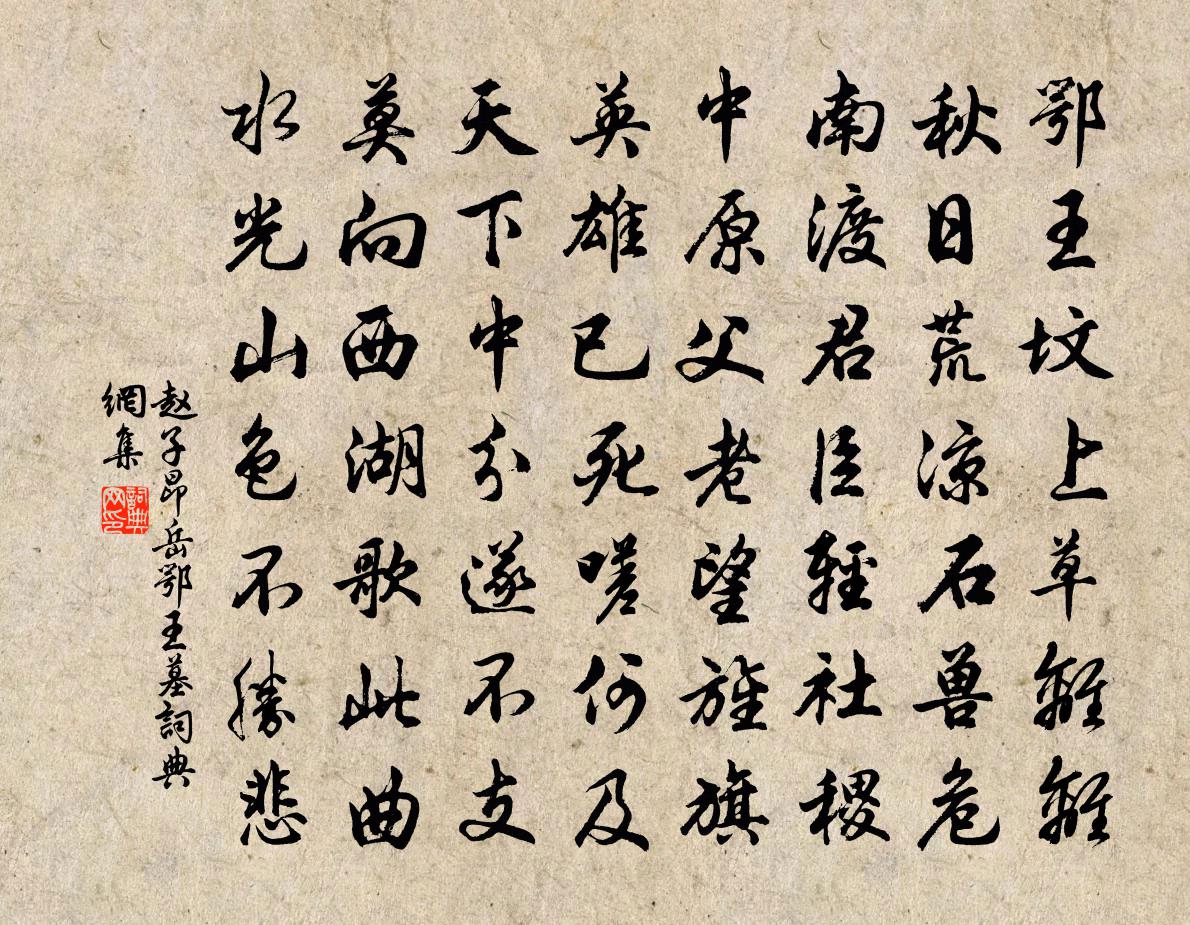 鄂王坟上草離離
秋日荒凉石兽危
南渡君臣輕社稷
中原父老望旌旗
英雄已死嗟何及
天下中分遂不支
莫向西湖歌此曲
水光山色不勝悲
赵子昂岳鄂王墓詞典
網集
詞典网印